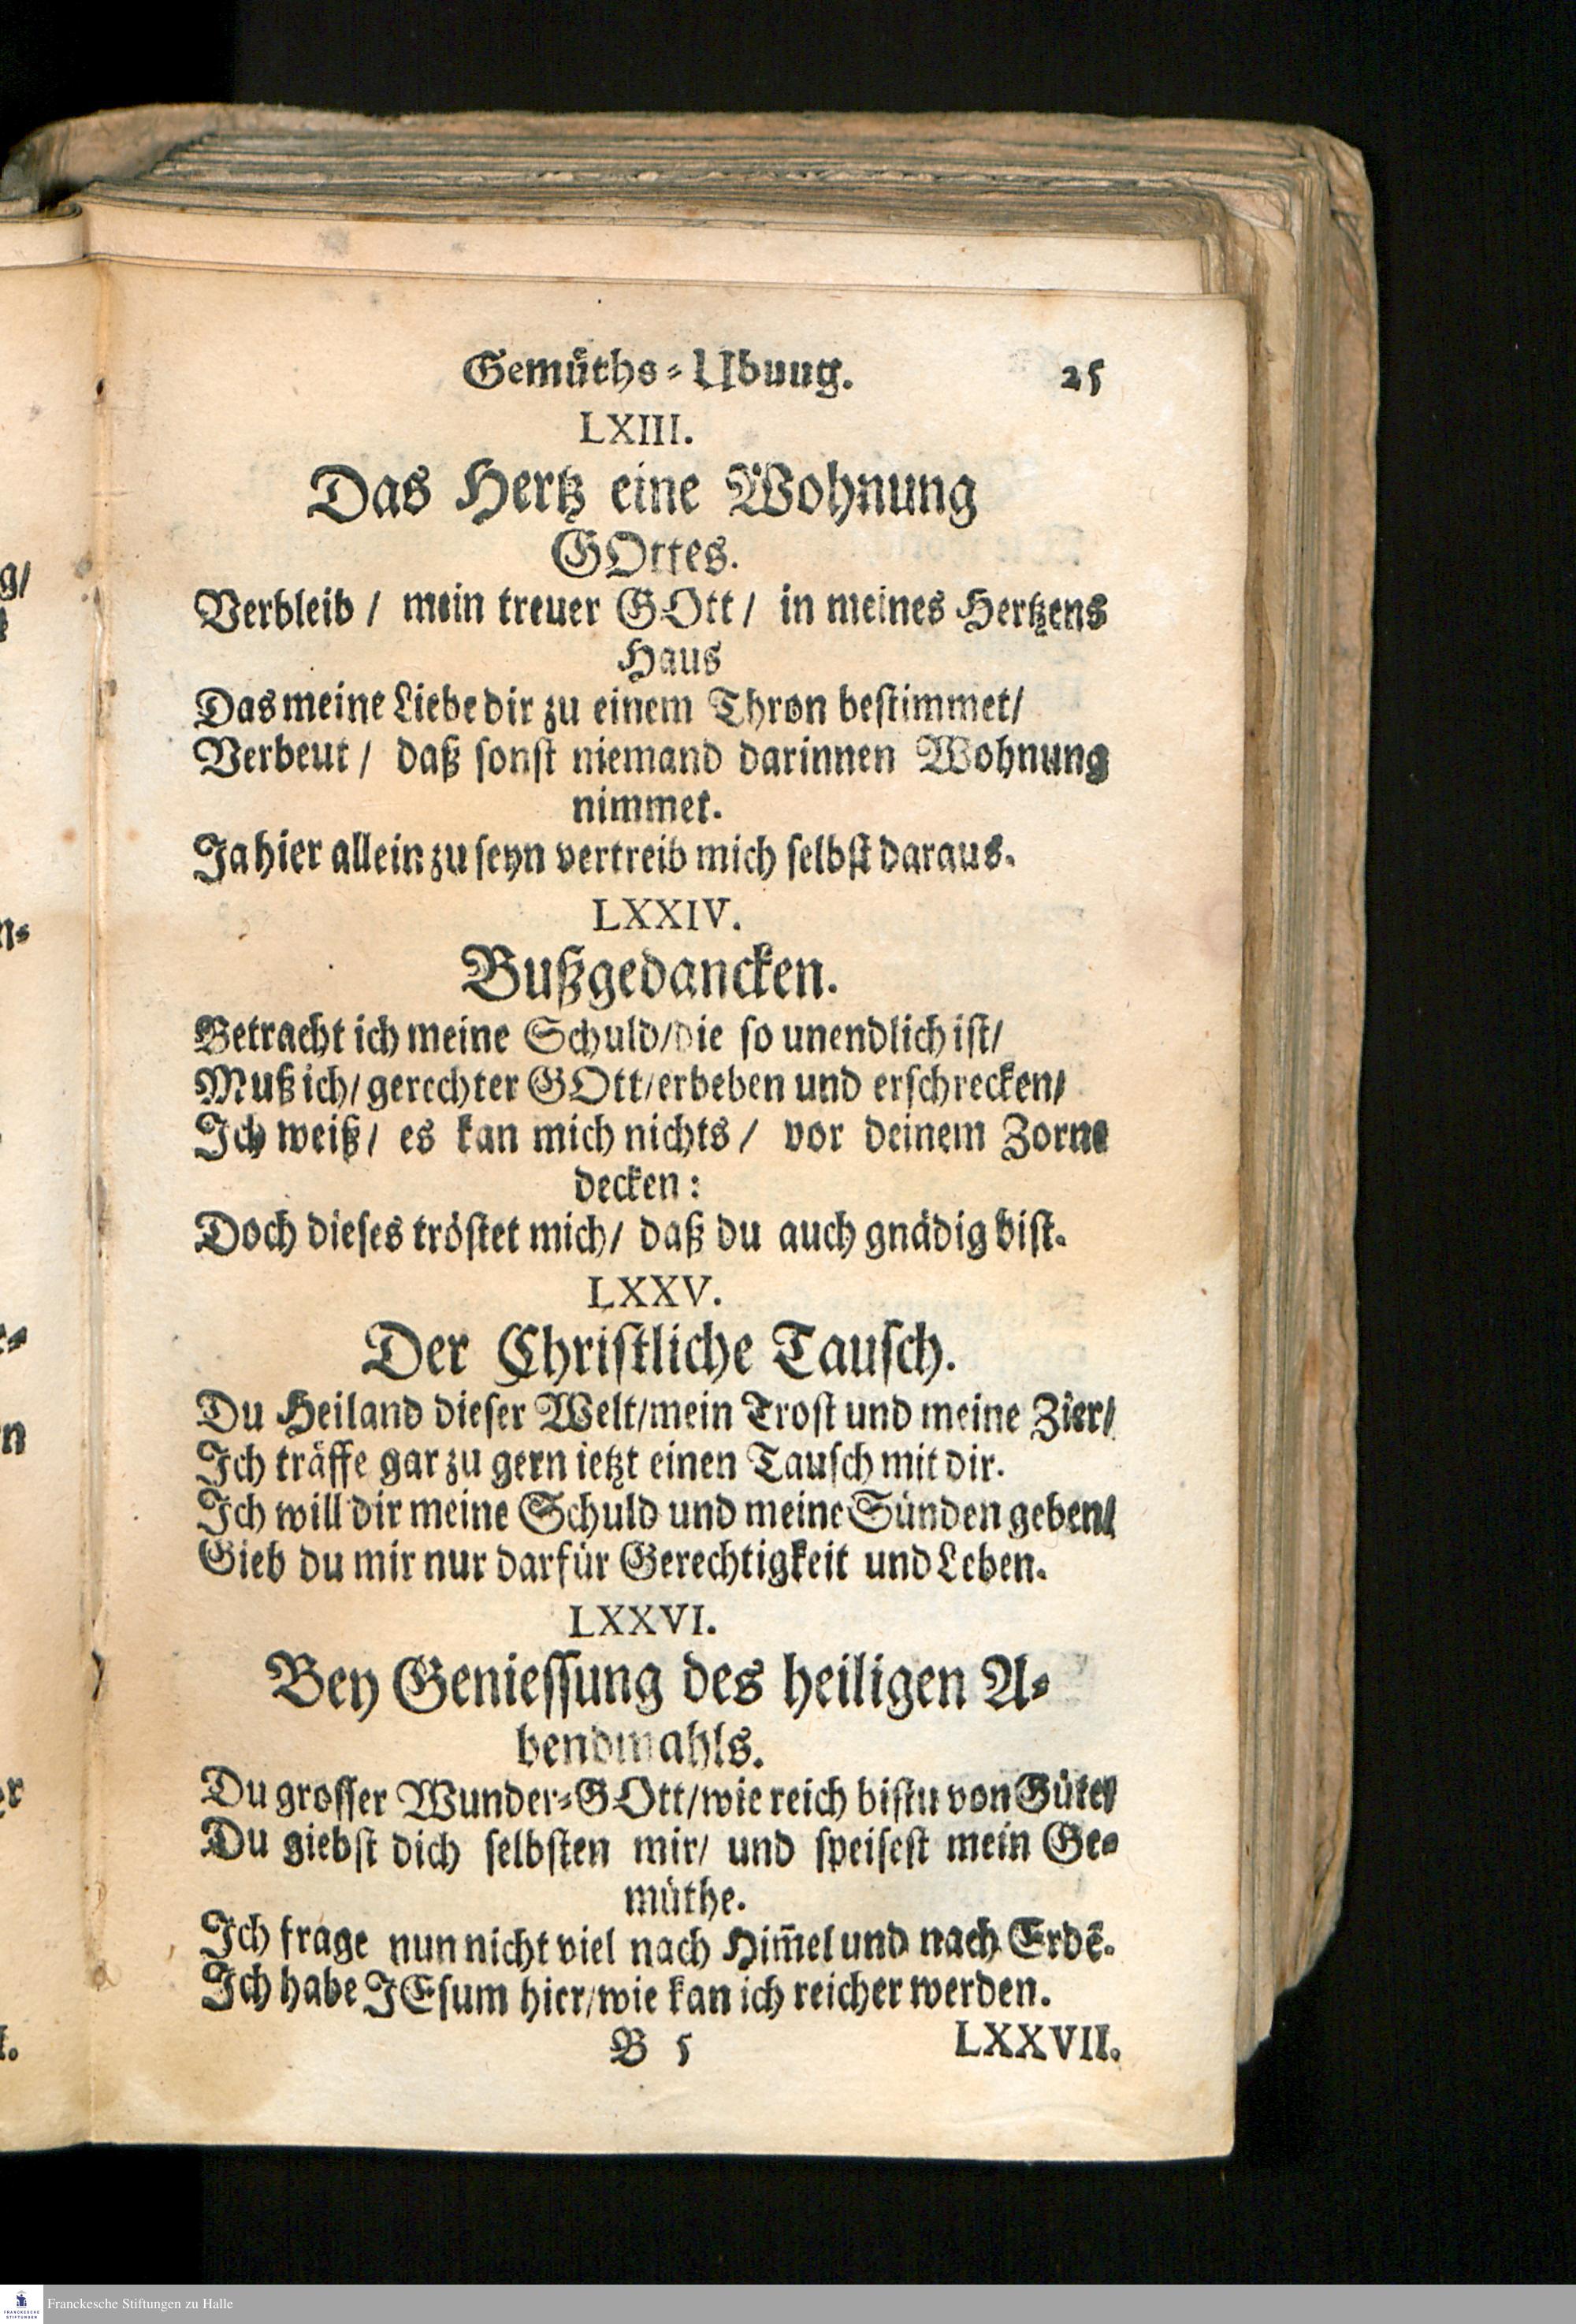 Gemüths-Ubung. 25
LXIII.
Das Hertz eine Wohnung
GOttes.
Verbleib / mein treuer GOtt / in meines Hertzens
Haus
Das meine Liebe dir zu einem Thron bestimmet/
Verbeut / daß sonst niemand darinnen Wohnung
nimmet.
Ja hier allein zu seyn vertreib mich selbst daraus.
LXXIV.
Bußgedancken.
Betracht ich meine Schuld/die so unendlich ist/
Muß ich/ gerechter GOtt/erbeben und erschrecken/
Ich weiß/ es kan mich nichts / vor deinem Zorne
decken:
Doch dieses tröstet mich/ daß du auch gnädig bist.
LXXV.
Der Christliche Tausch.
Du Heiland dieser Welt/mein Trost und meine Zier/
Ich träffe gar zu gern ietzt einen Tausch mit dir.
Ich will dir meine Schuld und meine Sünden geben/
Gieb du mir nur darfür Gerechtigkeit und Leben.
LXXVI.
Bey Geniessung des heiligen A-
bendmahls.
Du grosser Wunder-GOtt/wie reich bistu von Güte/
Du giebst dich selbsten mir/ und speisest mein Ge-
müthe.
Ich frage nun nicht viel nach Him̃el und nach Erdẽ.
Ich habe JEsum hier/wie kan ich reicher werden.
B 5 LXXVII.
Franckesche Stiftungen zu Halle